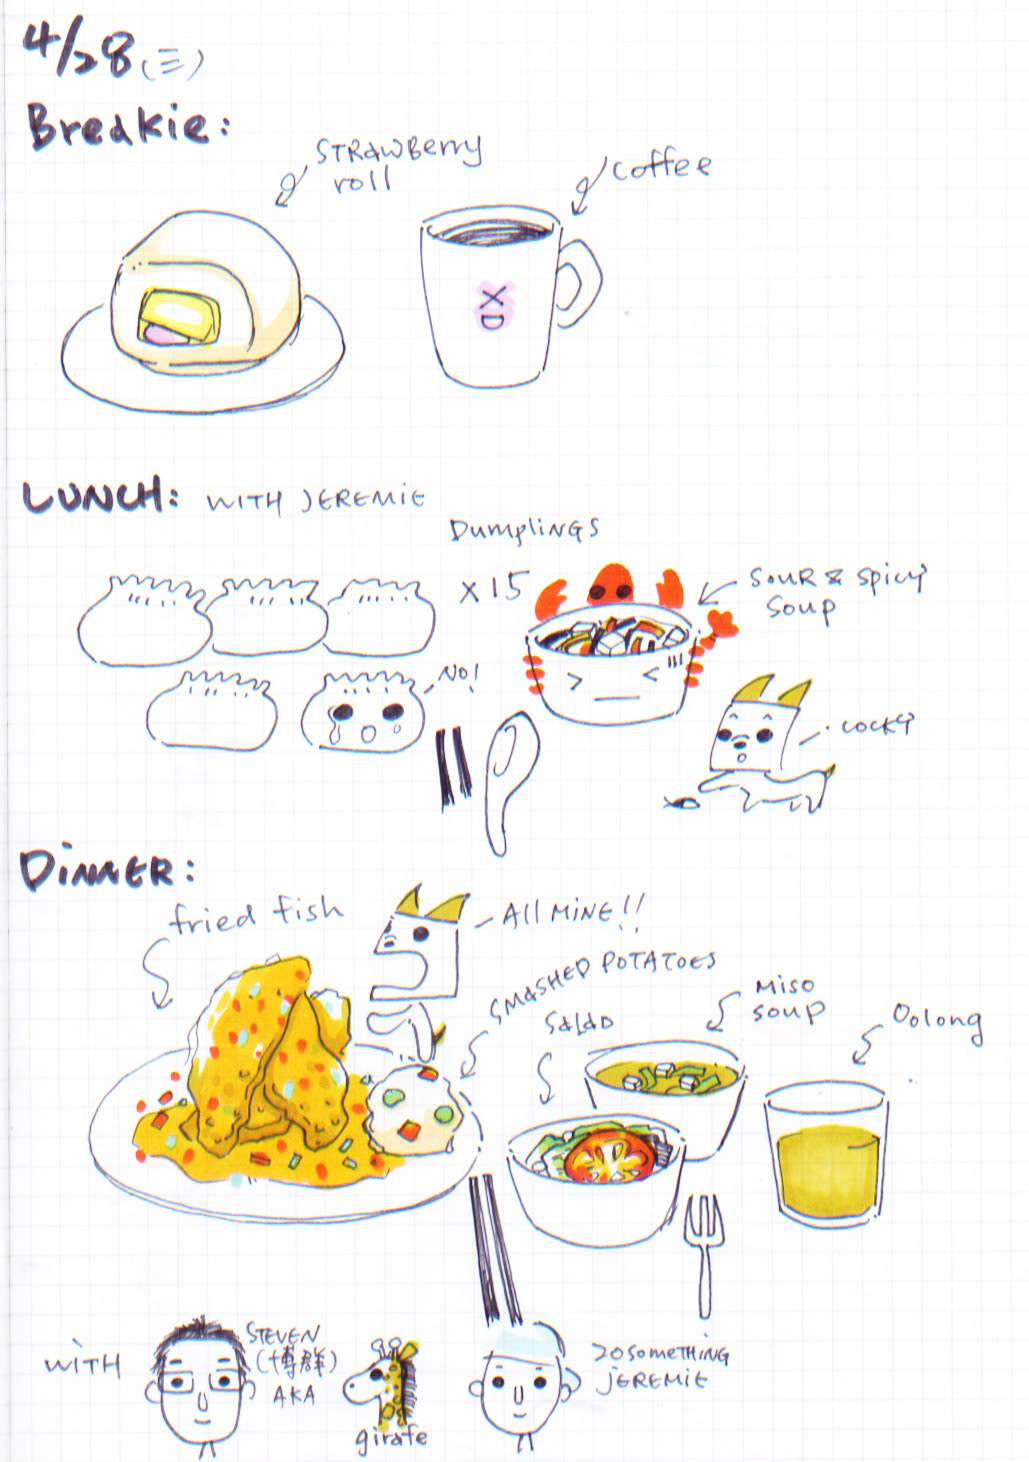 4/28 (三)
Breakie:
STRAWBerry
roll
coffee
XD
LUNCH: WITH JEREMIE
DumplINGS
x15
SOUR & Spicy
Soup
NO!
COCKY
DiNNER:
fried fish
All MiNE!!
SMASHED POTATOES
SALAD
Miso
soup
Oolong
WiTH
STEVEN
(博群)
AKA
girafe
20someTHiNG
jEREMiE